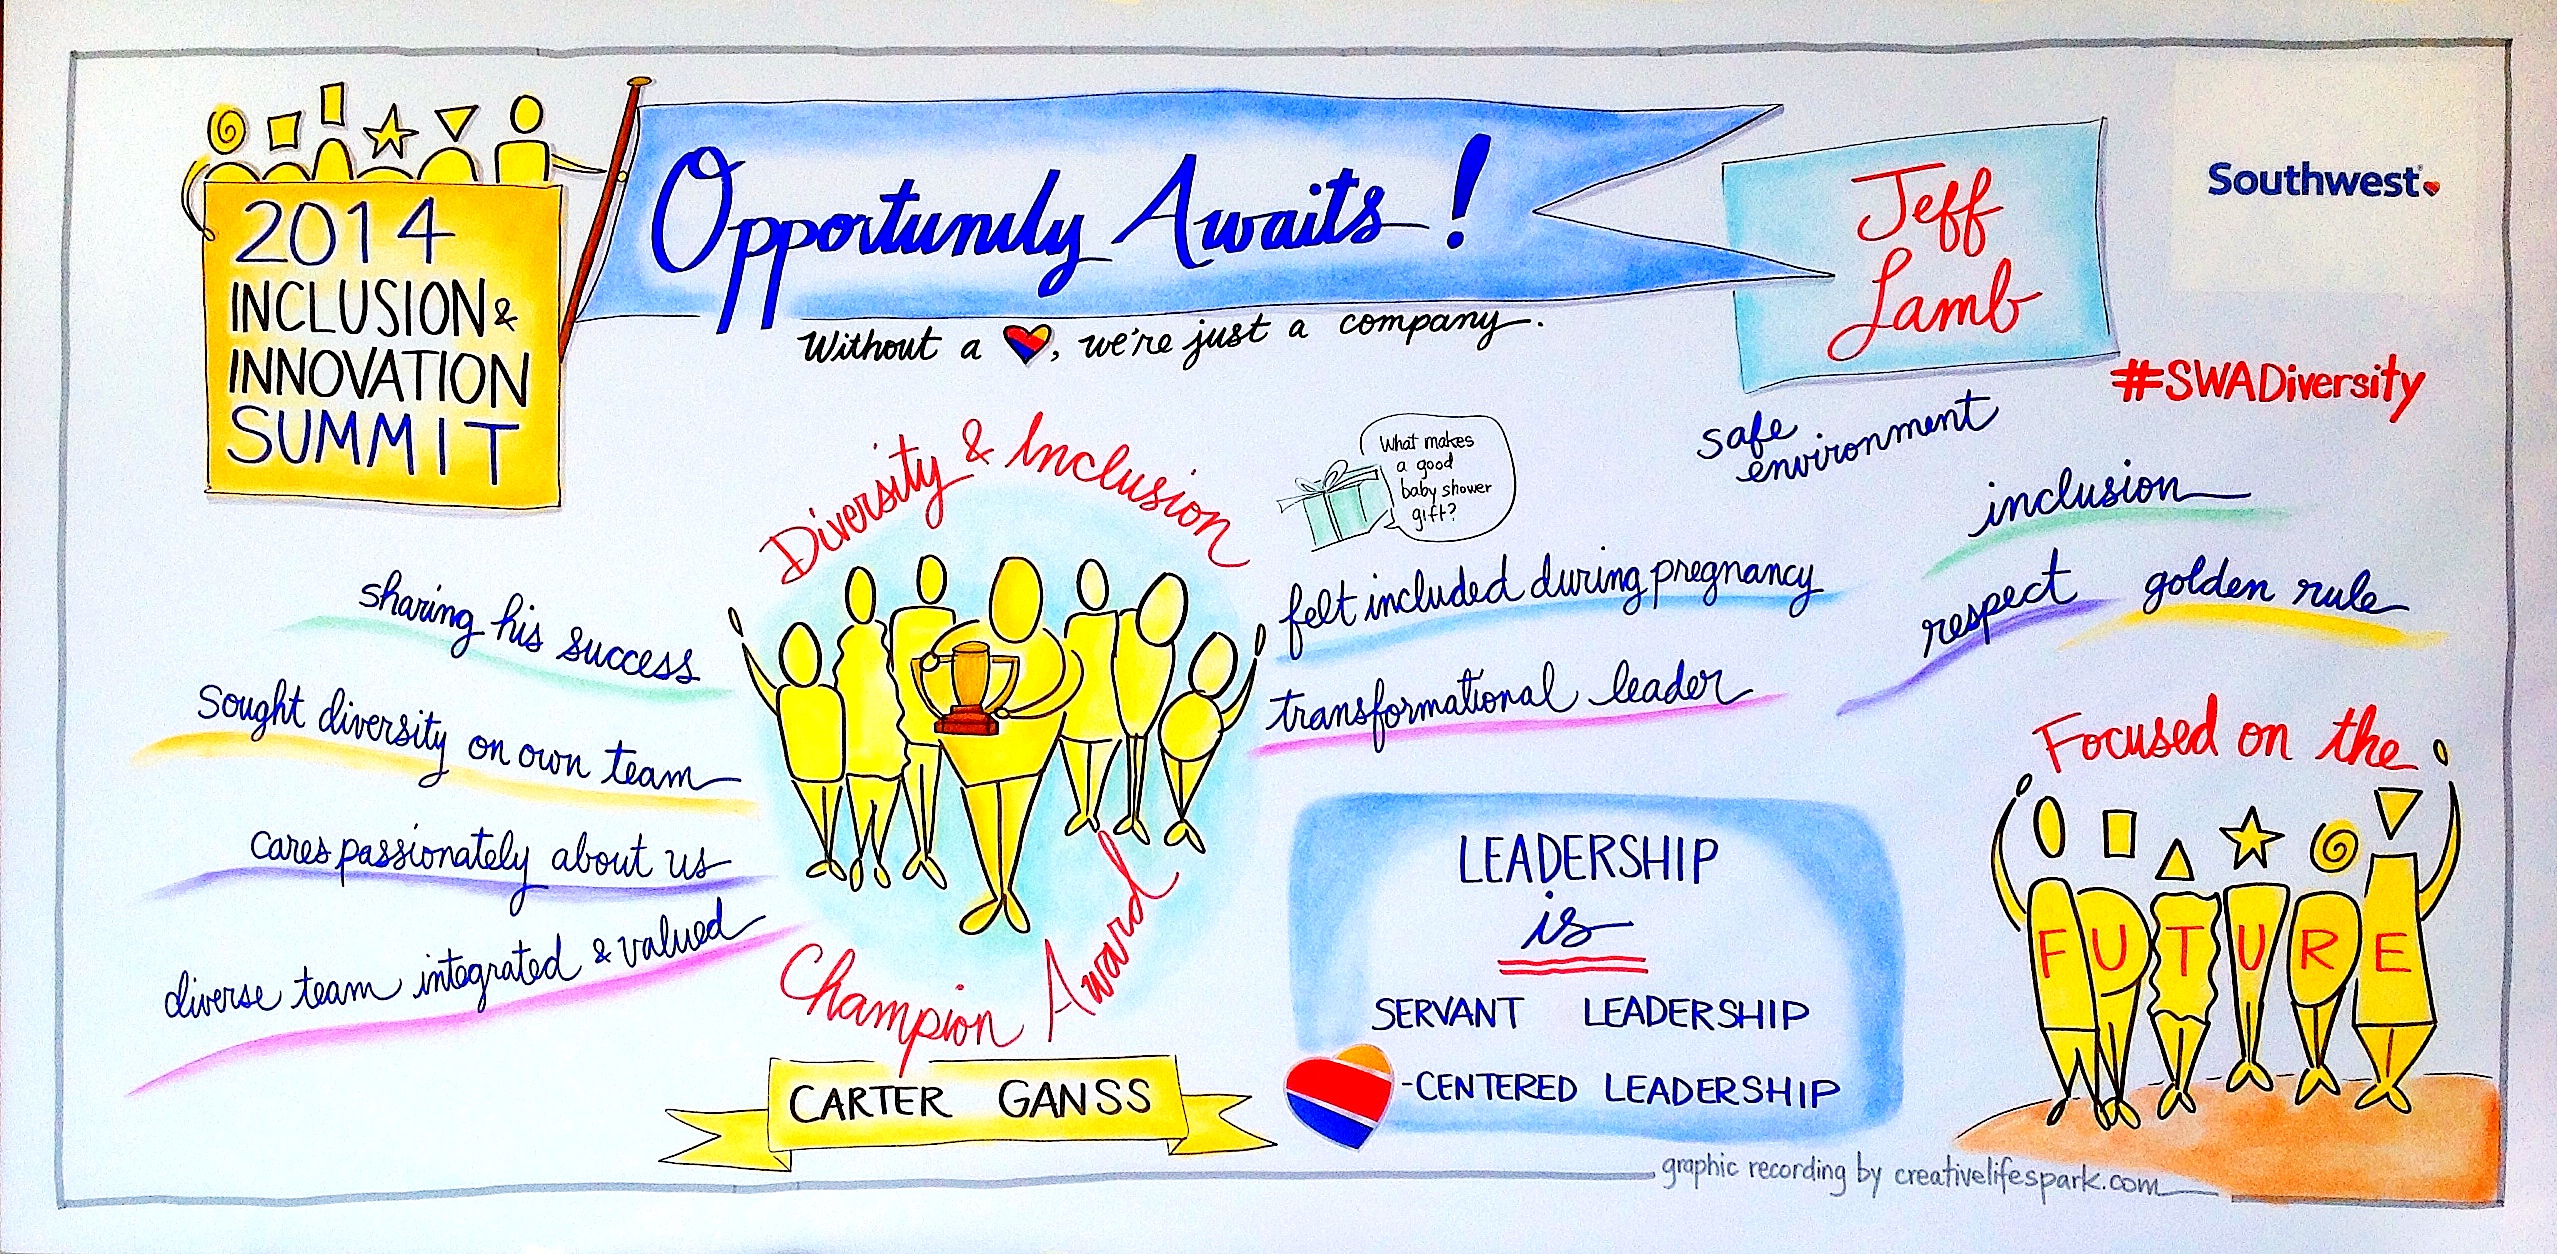 2014
INCLUSION &
INNOVATION
SUMMIT
Opportunity Awaits!
Without a , we're just a company.
Jeff
Lamb
Southwest
#SWADiversity
Diversity & Inclusion
Champion Award
CARTER GANSS
sharing his success
sought diversity on own team
cares passionately about us
diverse team integrated & valued
What makes
a good
baby shower
gift?
felt included during pregnancy
transformational leader
safe
environment
inclusion
respect
golden rule
LEADERSHIP
is
SERVANT LEADERSHIP
-CENTERED LEADERSHIP
Focused on the
FUTURE
graphic recording by creativelifespark.com